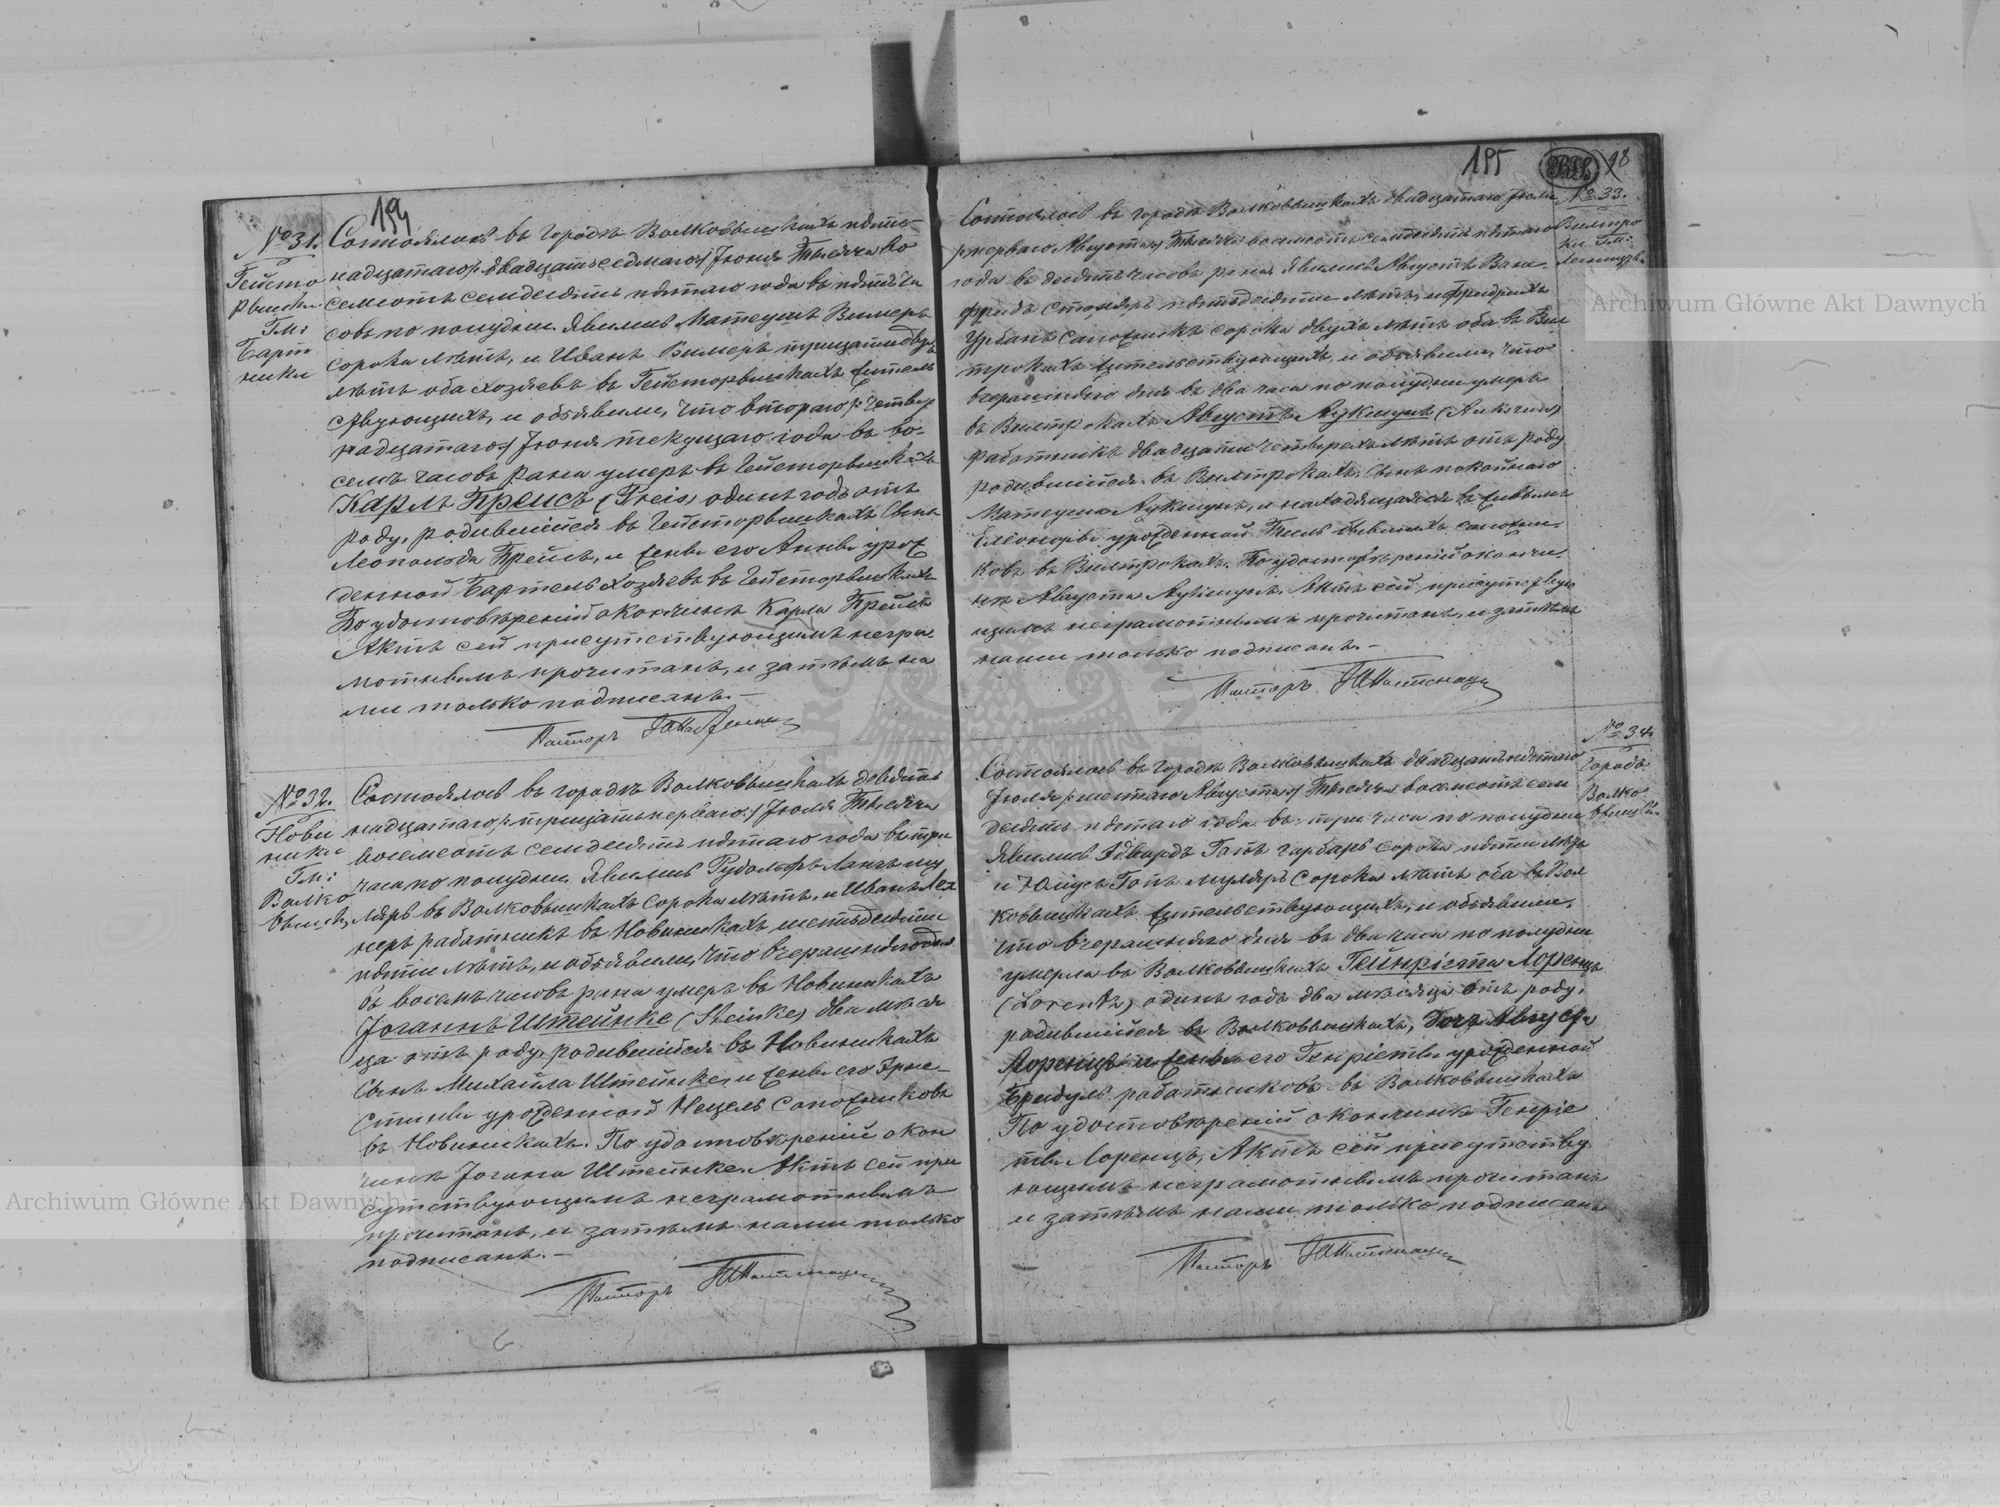 194
№ 31.
Гейсто
рвишки
Гм:
Барт
ники
Состоялось въ городѣ Волковышкахъ пятъ-
надцатаго /двадцать седмаго/ Іюня Тысяча во
семсотъ семдесятъ пятаго года въ пять ча
совъ по полудни. Явились Матеушъ Вилеръ
сорока лѣтъ, и Иванъ Вилеръ тридцати двухъ
лѣтъ оба хозяевъ въ Гейсторвишкахъ жительс
ствующихъ, и объявили, что втораго /: четвер
надцатаго :/ Іюня текущаго года въ во-
семъ часовъ рана умеръ въ Гейсторвишкахъ
Карлъ Прейсъ (Preis) одинъ годъ отъ
роду, родившійся въ Гейсторвишкахъ Сынъ
Леопольда Прейсъ, и жены его Анны урож
денной Бартель хозяевъ въ Гейсторвишкахъ
По удостовѣреній окончинѣ Карла Прейсъ
Актъ сей присутствующимъ негра
мотнымъ прочитанъ, и затѣмъ на
ми только подписанъ. –
Пасторъ
№ 32.
Нови
ники
Гм:
Волко
вышки
Состоялось въ городѣ Волковышкахъ девять
надцатаго /: тридцать перваго :/ Іюля Тысяча
восемсотъ семдесятъ пятаго года въ три
часа по полудни. Явились Рудольфъ Лангъ му
ляръ въ Волковышкахъ сорока лѣтъ, и Иванъ Лех
неръ работникъ въ Новиникахъ шестьдесяти
пяти лѣтъ, и объявили, что вчерашняго дня
въ восемъ часовъ рана умеръ въ Новиникахъ
Іоганнъ Штейнке (Steinke) два мѣся
ца отъ роду, родившійся въ Новиникахъ
Сынъ Михаила Штейнке, и жены его Эрне-
стины урожденной Нецель Сапожниковъ
въ Новиникахъ. По удостовѣреній окон
чинѣ Іогана Штейнке. Актъ сей при
сутствующимъ неграмотнымъ
прочитанъ, и затѣмъ нами только
подписанъ. –
Пасторъ
195
98
№ 33.
Вилтро
ки Гм:
Состоялось въ городѣ Волковышкахъ двадцатаго Іюля
/перваго Августа/ Тысяча восемсотъ семдесятъ пятаго
года въ десять часовъ рана. Явились Августъ Вани-
фридъ столяръ пятьдесяти лѣтъ, и Фридрихъ
Урбанъ сапожникъ сорока двухъ лѣтъ оба въ Вил
трокахъ жительствующихъ, и объявили, что
вчерашняго дня въ два часа по полудни умеръ
въ Вилтрокахъ Августъ Аукшунъ
работникъ двадцати четырехъ лѣтъ отъ роду
родившійся въ Вилтрокахъ, Сынъ покойнаго
Матеуша Аукшунъ, и находящаяся въ живыхъ
Елеоноры урожденной Тиль бывшихъ сапожни-
ковъ въ Вилтрокахъ. По удостовѣреній окончи
нѣ Августа Аукшунъ, Актъ сей присутствую
щимъ неграмотнымъ прочитанъ, и затѣмъ
нами только подписанъ. –
Пасторъ
№ 34.
Городъ
Волко-
вышки
Состоялось въ городѣ Волковышкахъ двадцать пятаго
Іюля /: шестаго Августа :/ Тысяча восемсотъ сем
десятъ пятаго года въ три часа по полудни
Явились Эдвардъ Гапъ гарбаръ сорока пяти лѣтъ
и Юліусъ Гапъ муляръ сорока лѣтъ оба въ Вол
ковышкахъ жительствующихъ, и объявили,
что вчерашняго дня въ два часа по полудни
умерла въ Волковышкахъ Гейнріета Лоренцъ
(Lorentz) одинъ годъ два мѣсяца отъ роду,
родившійся въ Волковышкахъ, Дочь Августа
Лоренцъ и жены его Генріеты урожденной
Бридуль работниковъ въ Волковышкахъ
По удостовѣреній окончинѣ Генріе
ты Лоренцъ, Актъ сей присутству
ющимъ неграмотнымъ прочитанъ
и затѣмъ нами только подписанъ
Пасторъ
Archiwum Główne Akt Dawnych
Archiwum Główne Akt Dawnych